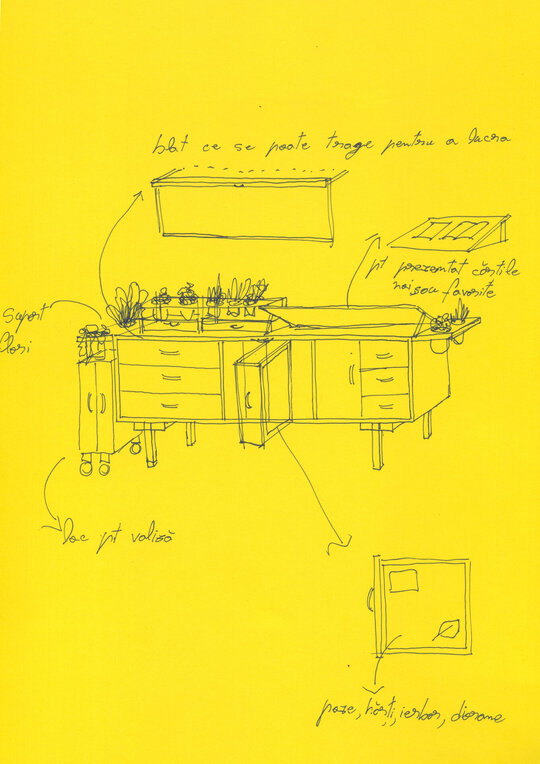 blat ce se poate trage pentru a lucra
pt prezentat cărțile
noi sau favorite
Suport
flori
loc pt valiză
poze, hărți, ierbar, diorame